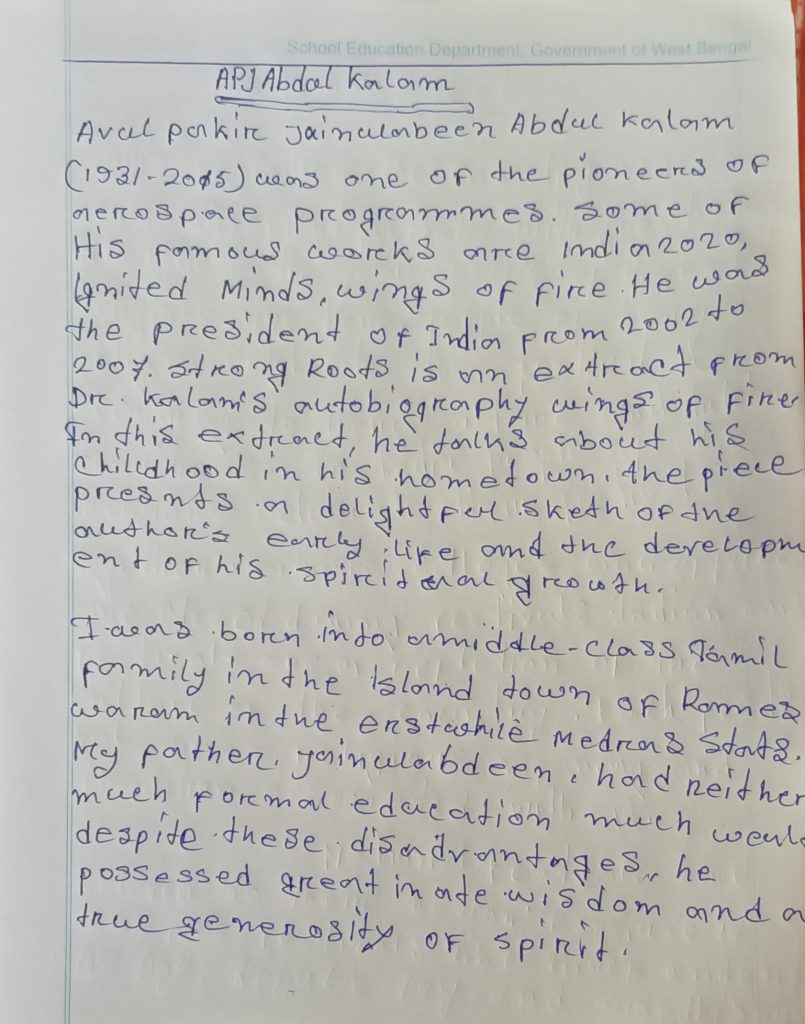 School Education Department, Government of West Bengal
APJ Abdul Kalam
Avul pakir Jainulabeen Abdul Kalam
(1931-2015) was one of the pioneers of
aerospace programmes. Some of
His famous works are India 2020,
Ignited Minds, wings of fire. He was
the president of India from 2002 to
2007. Strong Roots is an extract from
Dr. Kalam's autobiography wings of Fire
In this extract, he talks about his
Childhood in his hometown. the piece
presnts a delightful sketh of the
author's early life and the developm
ent of his spiritual growth.
I was born into a middle-class Tamil
family in the island town of Rames
waram in the erstwhile Medras Stats.
My father, Jainulabdeen, had neither
much formal education much weal
despite these disadvantages, he
possessed great in ate wisdom and a
true generosity of spirit.